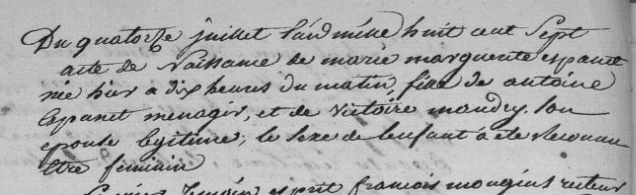 Du quatorze juillet l'an mille huit cent Sept
acte de Naissance de marie marguerite espanet
née hier à dix heures du matin, fille de antoine
Espanet menager, et de victoire maudry. Son
epouse legitime; le sexe de l'enfant à eté Reconnu
être feminin
premier temoin esprit françois mougins